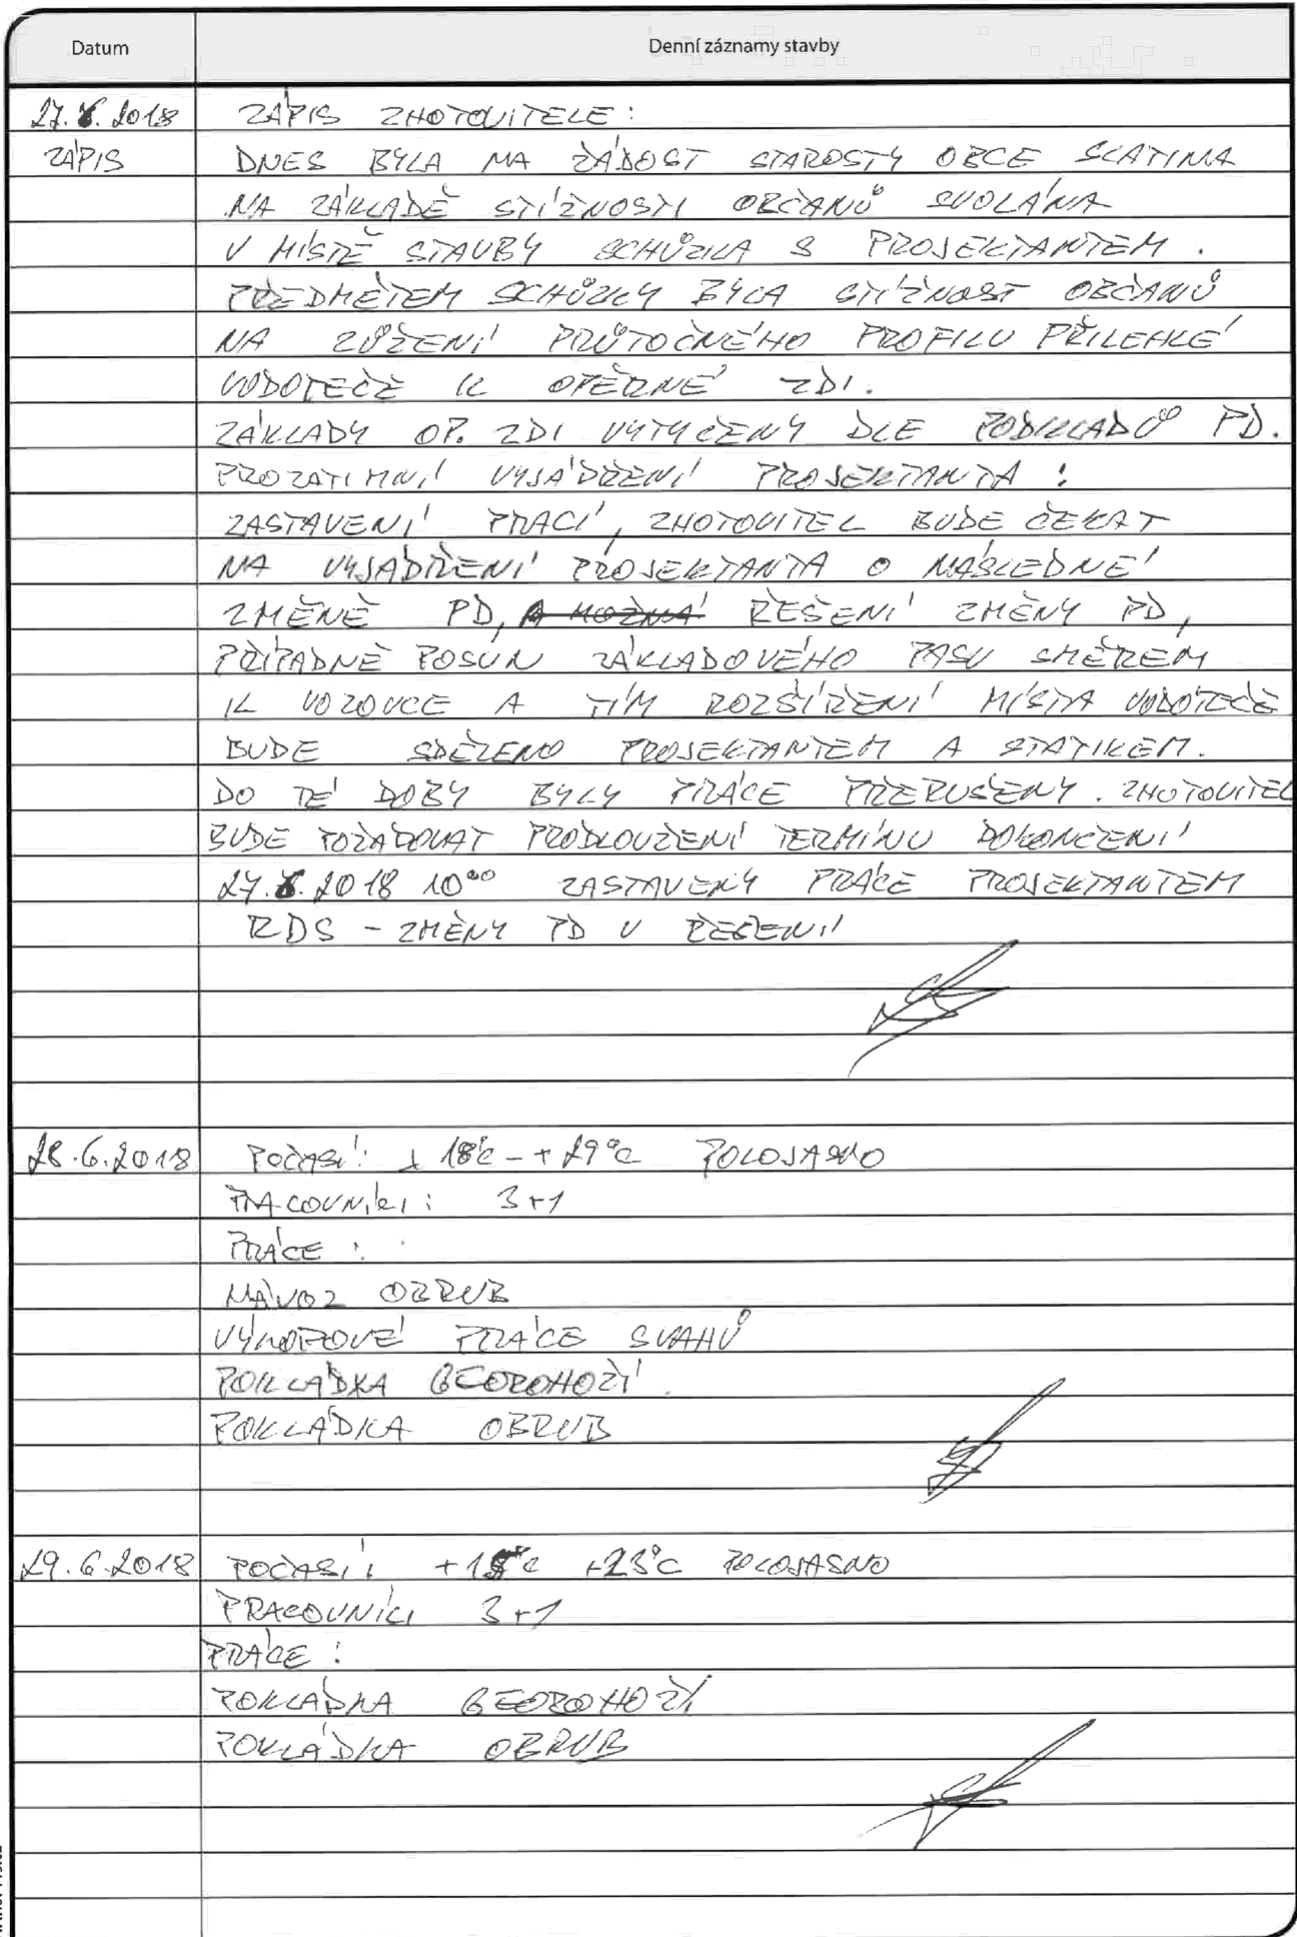 Datum Denní záznamy stavby
27.6.2018 ZÁPIS ZHOTOVITELE:
ZÁPIS DNES BYLA NA ŽÁDOST STAROSTY OBCE SLATINA
NA ZÁKLADĚ STÍŽNOSTI OBČANŮ SVOLÁNA
V MÍSTĚ STAVBY SCHŮZKA S PROJEKTANTEM.
PŘEDMĚTEM SCHŮZKY BYLA STÍŽNOST OBČANŮ
NA ZŮŽENÍ PRŮTOČNÉHO PROFILU PŘILEHLÉ
VODOTEČE K OPĚRNÉ ZDI.
ZÁKLADY OP. ZDI VYTYČENY DLE PODKLADŮ PD.
PROZATIMNÍ VYJÁDŘENÍ PROJEKTANTA:
ZASTAVENÍ PRACÍ, ZHOTOVITEL BUDE ČEKAT
NA VYJÁDŘENÍ PROJEKTANTA O NÁSLEDNÉ
ZMĚNĚ PD, A MOŽNÁ ŘEŠENÍ ZMĚNY PD,
PŘÍPADNĚ POSUN ZÁKLADOVÉHO PASU SMĚREM
K VOZOVCE A TÍM ROZŠÍŘENÍ MÍSTA VODOTEČE
BUDE SDĚLENO PROJEKTANTEM A STATIKEM.
DO TÉ DOBY BYLY PRÁCE PŘERUŠENY. ZHOTOVITEL
BUDE POŽADOVAT PRODLOUŽENÍ TERMÍNU DOKONČENÍ
27.6.2018 10⁰⁰ ZASTAVENY PRÁCE PROJEKTANTEM
RDS - ZMĚNY PD V ŘEŠENÍ
28.6.2018 POČASÍ: + 18°C - + 29°C POLOJASNO
PRACOVNÍCI: 3+1
PRÁCE:
NÁVOZ OBRUB
VÝKOPOVÉ PRÁCE SVAHŮ
POKLÁDKA GEOROHOŽÍ
POKLÁDKA OBRUB
29.6.2018 POČASÍ: +23°C POLOJASNO
PRACOVNÍCI 3+1
PRÁCE:
POKLÁDKA GEOROHOŽÍ
POKLÁDKA OBRUB